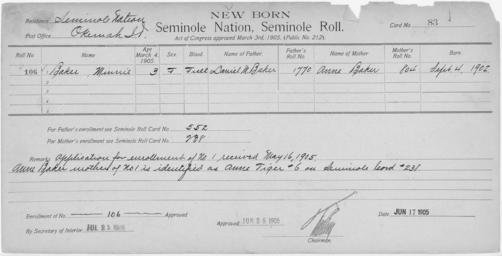 NEW BORN
Residence. Seminole Nation Seminole Nation, Seminole Roll. Card No. 83
Post Office. Okemah I.T. Act of Congress approved March 3rd, 1905. (Public No. 212).
Roll No. Name Age March 4, 1905. Sex. Blood. Name of Father. Father's Roll No. Name of Mother Mother's Roll No. Born
106 1 Baker Minnie 3 F Full Daniel M. Baker 1770 Anne Baker 804 Sept. 4, 1902
2
3
4
5
For Father's enrollment see Seminole Roll Card No. 552
For Mother's enrollment see Seminole Roll Card No. 238
Remarks Application for enrollment of No 1 received May 16, 1905.
Anne Baker mother of No 1 is identified as Anne Tiger #6 on Seminole Card #238
Enrollment of No. 106 Approved Approved JUN 1905 Date JUN 17 1905
By Secretary of Interior. 1905
Chairman.